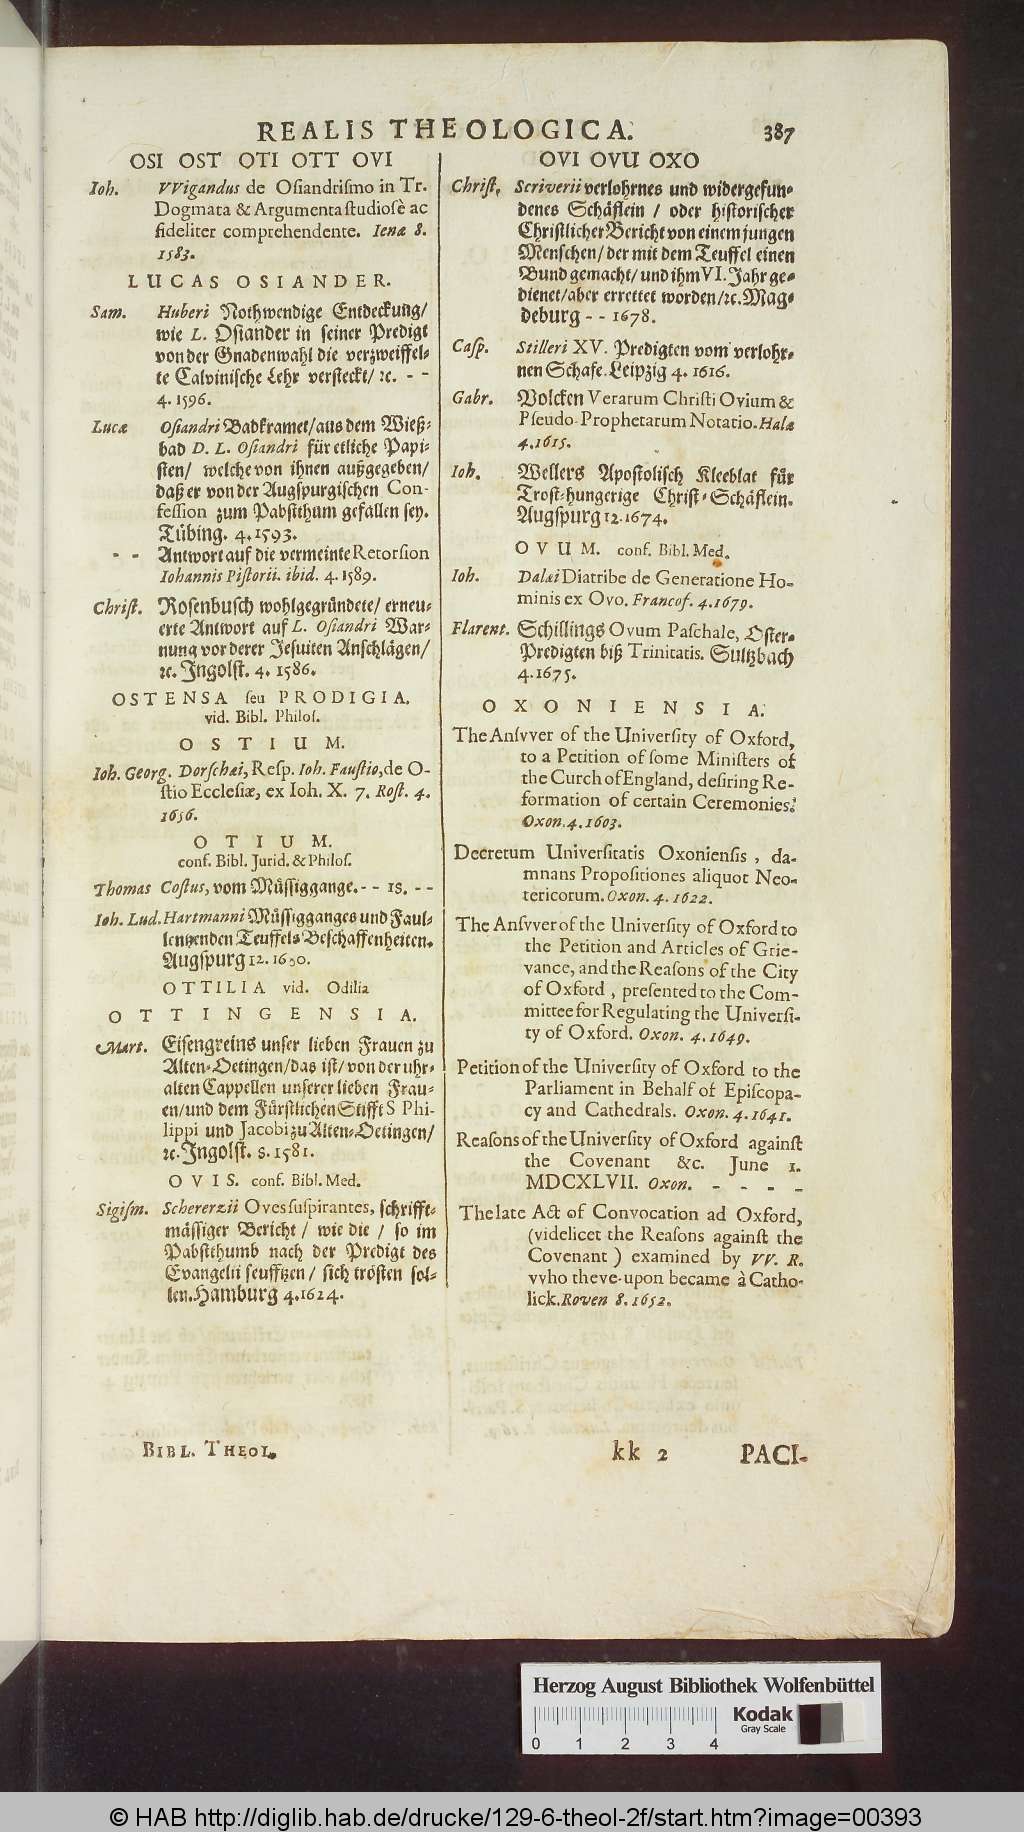 REALIS THEOLOGICA. 387
OSI OST OTI OTT OVI
Ioh. VVigandus de Osiandrismo in Tr.
Dogmata & Argumenta studiosè ac
fideliter comprehendente. Ienæ 8.
1583.
LUCAS OSIANDER.
Sam. Huberi Nothwendige Entdeckung/
wie L. Osiander in seiner Predigt
von der Gnadenwahl die verzweiffel-
te Calvinische Lehr versteckt/ ꝛc. - -
4. 1596.
Lucæ Osiandri Badkramet/aus dem Wieß-
bad D. L. Osiandri für etliche Papi-
sten/ welche von ihnen außgegeben/
daß er von der Augspurgischen Con-
fession zum Pabstthum gefallen sey.
Tübing. 4. 1593.
- - Antwort auf die vermeinte Retorsion
Iohannis Pistorii. ibid. 4. 1589.
Christ. Rosenbusch wohlgegründete/ erneu-
erte Antwort auf L. Osiandri War-
nung vor derer Jesuiten Anschlägen/
ꝛc. Ingolst. 4. 1586.
OSTENSA seu PRODIGIA.
vid. Bibl. Philos.
OSTIUM.
Ioh. Georg. Dorschæi, Resp. Ioh. Faustio, de O-
stio Ecclesiæ, ex Ioh. X. 7. Rost. 4.
1656.
OTIUM.
conf. Bibl. Jurid. & Philos.
Thomas Costus, vom Müssiggange. - - 1s. - -
Ioh. Lud. Hartmanni Müssigganges und Faul-
lentzenden Teuffels Beschaffenheiten.
Augspurg 12.
OTTILIA vid. Odilia
OTTINGENSIA.
Mart. Eisengreins unser lieben Frauen zu
Alten-Oetingen/das ist/ von der uhr-
alten Cappellen unserer lieben Frau-
en/und dem Fürstlichen Stifft S Phi-
lippi und Jacobi zu Alten-Oetingen/
ꝛc. Ingolst. 8. 1581.
OVIS. conf. Bibl. Med.
Sigism. Schererzii Oves suspirantes, schrifft-
mässiger Bericht / wie die / so im
Pabstthumb nach der Predigt des
Evangelii seufftzen / sich trösten sol-
len. Hamburg 4. 1624.
OVI OVU OXO
Christ. Scriverii verlohrnes und widergefun-
denes Schäflein / oder historischer
Christlicher Bericht von einem jungen
Menschen/ der mit dem Teuffel einen
Bund gemacht/ und ihm VI. Jahr ge-
dienet/aber errettet worden/ꝛc. Mag-
deburg - - 1678.
Casp. Stilleri XV. Predigten vom verlohr-
nen Schafe. Leipzig 4. 1616.
Gabr. Volcken Verarum Christi Ovium &
Pseudo-Prophetarum Notatio. Halæ
4. 1615.
Ioh. Wellers Apostolisch Kleeblat für
Trost-hungerige Christ-Schäflein.
Augspurg 12. 1674.
OVUM. conf. Bibl. Med.
Ioh. Dalæi Diatribe de Generatione Ho-
minis ex Ovo. Francof. 4. 1679.
Flarent. Schillings Ovum Paschale, Oster-
Predigten biß Trinitatis. Sultzbach
4. 1675.
OXONIENSIA.
The Ansvver of the University of Oxford,
to a Petition of some Ministers of
the Curch of England, desiring Re-
formation of certain Ceremonies.
Oxon. 4. 1603.
Decretum Universitatis Oxoniensis, da-
mnans Propositiones aliquot Neo-
tericorum. Oxon. 4. 1622.
The Ansvver of the University of Oxford to
the Petition and Articles of Grie-
vance, and the Reasons of the City
of Oxford, presented to the Com-
mittee for Regulating the Universi-
ty of Oxford. Oxon. 4. 1649.
Petition of the University of Oxford to the
Parliament in Behalf of Episcopa-
cy and Cathedrals. Oxon. 4. 1641.
Reasons of the University of Oxford against
the Covenant &c. June 1.
MDCXLVII. Oxon. - - - -
The late Act of Convocation ad Oxford,
(videlicet the Reasons against the
Covenant ) examined by VV. R.
vvho theve-upon became à Catho-
lick. Roven 8. 1652.
BIBL. THEOL. kk 2 PACI-
Herzog August Bibliothek Wolfenbüttel
Kodak
Gray Scale
0 1 2 3 4
© HAB http://diglib.hab.de/drucke/129-6-theol-2f/start.htm?image=00393